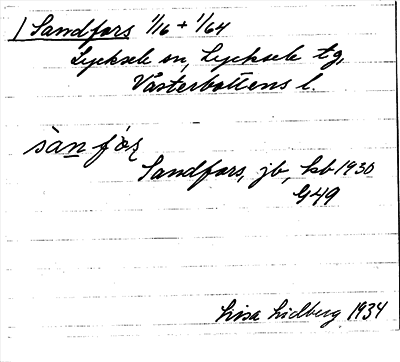 1 Sandfors 1/16 + 1/64
Lycksele sn, Lycksele tg,
Västerbottens l.
sànfóʂ
Sandfors, jb, kb 1930
G49
Lisa Lidberg 1934